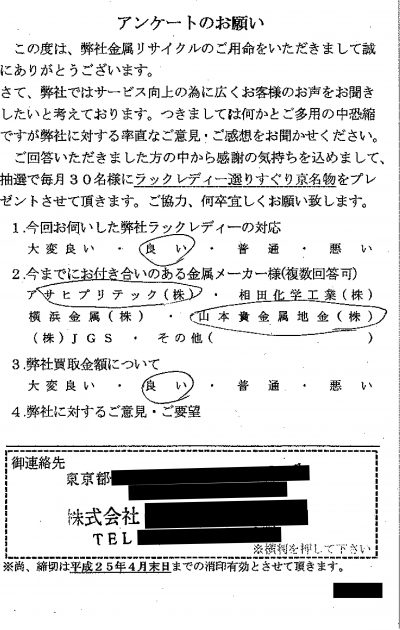 アンケートのお願い
この度は、弊社金属リサイクルのご用命をいただきまして誠
にありがとうございます。
さて、弊社ではサービス向上の為に広くお客様のお声をお聞き
したいと考えております。つきましては何かとご多用の中恐縮
ですが弊社に対する率直なご意見・ご感想をお聞かせください。
ご回答いただきました方の中から感謝の気持ちを込めまして、
抽選で毎月３０名様にラックレディー選りすぐり京名物をプレ
ゼントさせて頂きます。ご協力、何卒宜しくお願い致します。
１.今回お伺いした弊社ラックレディーの対応
大変良い ・ 良い ・ 普通 ・ 悪い
２.今までにお付き合いのある金属メーカー様(複数回答可)
アサヒプリテック(株) ・ 相田化学工業(株)
横浜金属(株) ・ 山本貴金属地金(株)
(株)ＪＧＳ ・ その他( )
３.弊社買取金額について
大変良い ・ 良い ・ 普通 ・ 悪い
４.弊社に対するご意見・ご要望
御連絡先
東京都
株式会社
ＴＥＬ
※横判を押して下さい
※尚、締切は平成２５年４月末日までの消印有効とさせて頂きます。